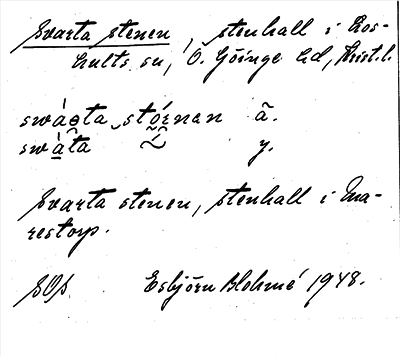 Svarta stenen, stenhall i Los-
hults sn, Ö. Göinge hd, Krist. l.
swáɵta stórnan ä.
swáta y.
Svarta stenen, stenhall i Ma-
restorp.
SOp. Esbjörn Blohmé 1948.